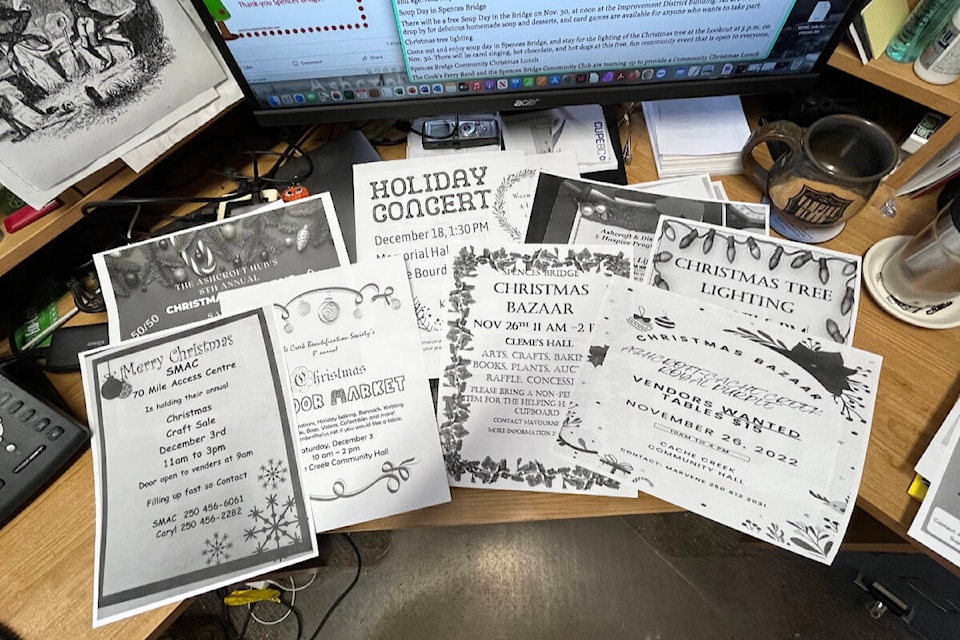 Thank-you Spences Bridge
Comment
Share
Soup Day in Spences Bridge
There will be a free Soup Day in the Bridge on Nov. 30, at noon at the Improvement District Building.
drop by for delicious homemade soup and desserts, and card games are available for anyone who wants to take part.
Christmas tree lighting
Come out and enjoy soup day in Spences Bridge, and stay for the lighting of the Christmas tree at the Lookout at 5 p.m. on
Nov. 30. There will be carol singing, hot chocolate, and hot dogs at this free, fun community event that is open to everyone,
Spences Bridge Community Christmas Lunch
The Cook's Ferry Band and the Spences Bridge Community Club are teaming up to provide a Community Christmas Lunch
acer
HOLIDAY
CONCERT
December 18, 1:30 PM
Memorial Hal
Ashcroft & Di
Hospice Prog
THE ASHCROFT HUB'S
8TH ANNUAL
CHRISTMA
50/50
SA
Merry Christmas
SMAC
70 Mile Access Centre
Is holding their annual
Christmas
Craft Sale
December 3rd
11am to 3pm
Door open to venders at 9am
Filling up fast so Contact
SMAC 250 456-6061
Caryl 250 456-2282
Creek Beautification Society's
8th annual
Christmas
OOR MARKET
ations, Holiday baking, Bannock, Knitting,
if you would like a table.
Saturday, December 3
10 am - 2 pm
Creek Community Hall
SPENCES BRIDGE
CHRISTMAS
BAZAAR
NOV 26TH 11 AM -2 P
CLEME'S HALL
ARTS, CRAFTS, BAKIN
BOOKS, PLANTS, AUCT
RAFFLE, CONCESSI
PLEASE BRING A NON-PE
ITEM FOR THE HELPING HA
CUPBOARD
CONTACT MAVOURNE
MORE INFORMATION
CHRISTMAS TREE
LIGHTING
CHRISTMAS BAZAAR
VENDORS WANTED
TABLES $15
NOVEMBER 26, 2022
10AM TO 4 PM
CACHE CREEK
COMMUNITY HALL
CONTACT: MARVENE 250 512 2031